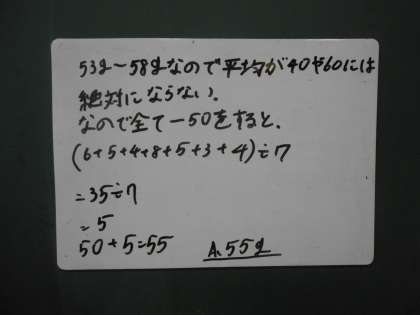 53g~58gなので平均が40や60には
絶対にならない。
なので全て-50をすると、
(6+5+4+8+5+3+4)÷7
=35÷7
=5
50+5=55
A.55g